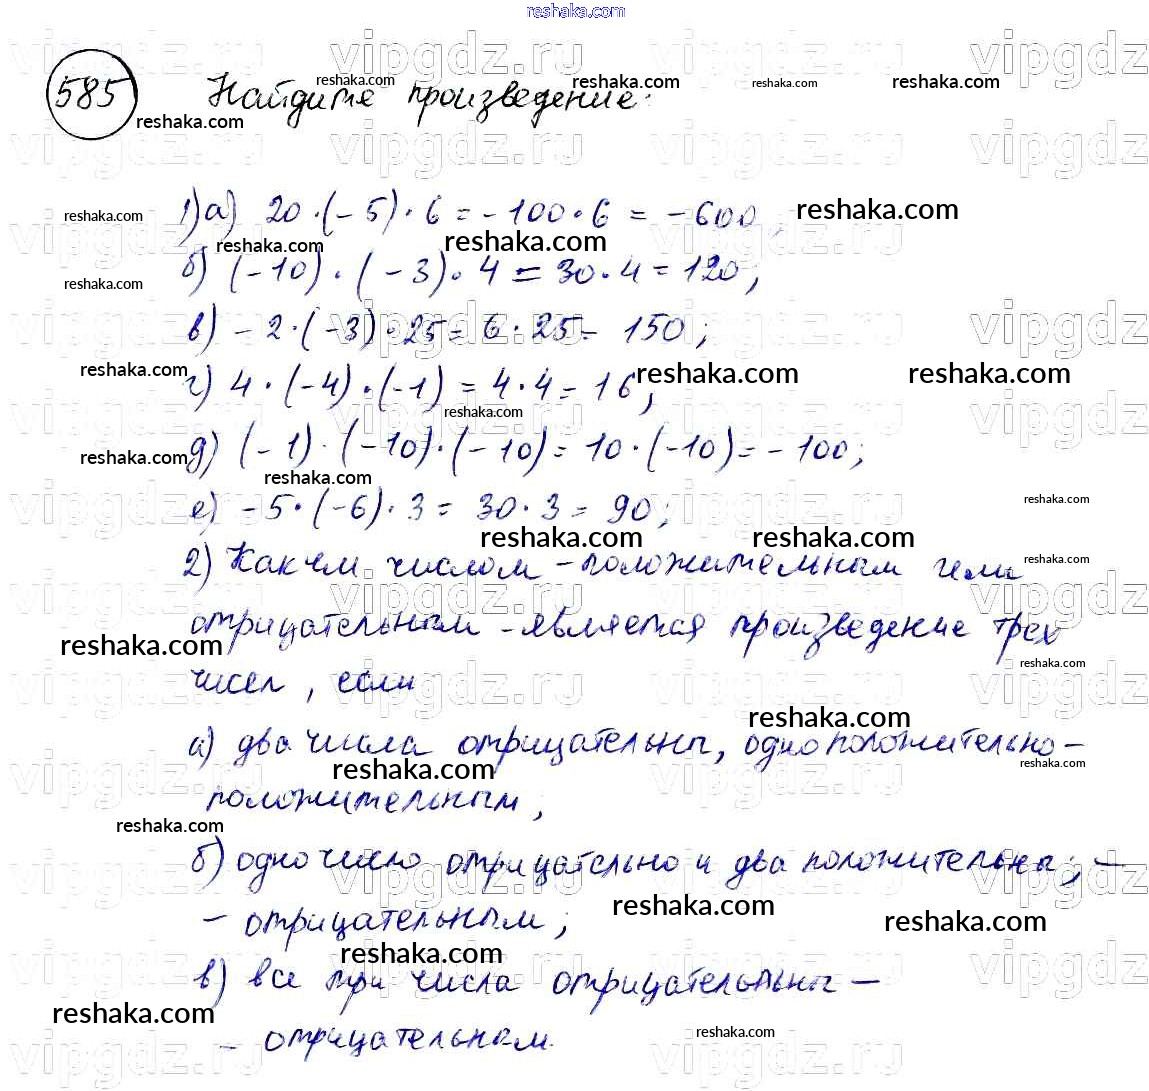 reshaka.com
585 Найдите произведение:
1) а) 20·(-5)·6 = -100·6 = -600;
б) (-10)·(-3)·4 = 30·4 = 120;
в) -2·(-3)·25 = 6·25 = 150;
г) 4·(-4)·(-1) = 4·4 = 16;
д) (-1)·(-10)·(-10) = 10·(-10) = -100;
е) -5·(-6)·3 = 30·3 = 90;
2) Каким числом - положительным или
отрицательным - является произведение трех
чисел, если
а) два числа отрицательны, одно положительно -
положительным;
б) одно число отрицательно и два положительны; -
- отрицательным;
в) все три числа отрицательны -
- отрицательным.